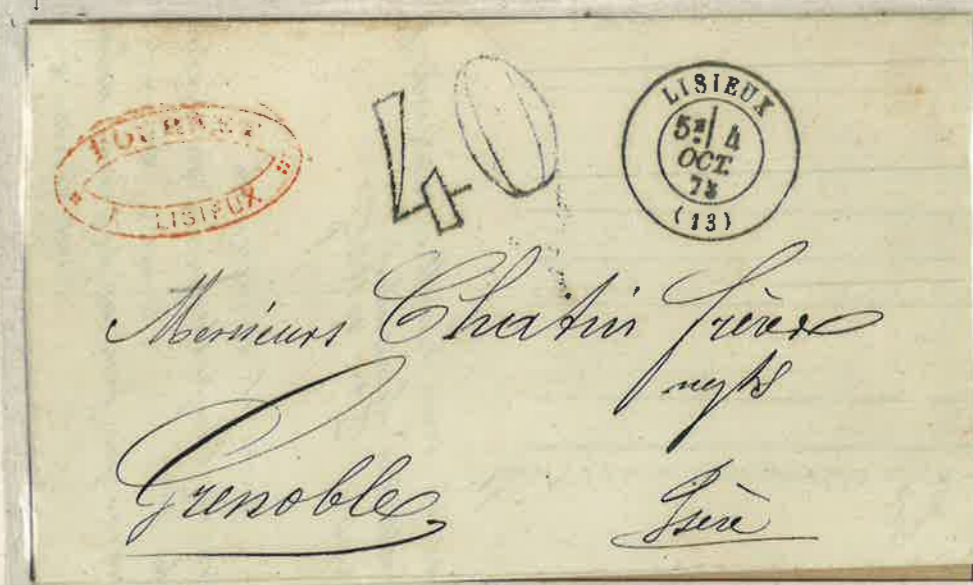 FOURNET
LISIEUX
40
LISIEUX
5E 4
OCT.
73
(13)
Messieurs Chatin frères
negts
Grenoble
Isère